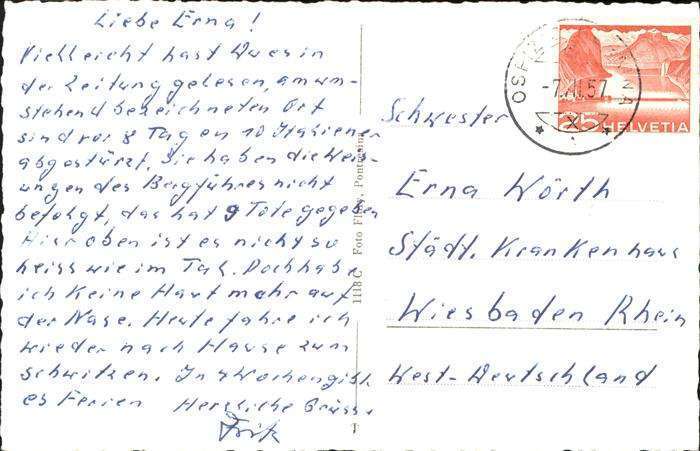 Liebe Erna!
Vielleicht hast Du es in
der Zeitung gelesen, am um-
stehend bezeichneten Ort
sind vor 8 Tagen 10 Italiener
abgestürzt. Sie haben die Weis-
ungen des Bergführers nicht
befolgt, das hat 9 Tote gegeben
Hier oben ist es nicht so
heiss wie im Tal. Doch habe
ich keine Haut mehr auf
der Nase. Heute fahre ich
wieder nach Hause zum
schwitzen. In 4 Wochen gibt
es Ferien Herzliche Grüsse
Fritz
1118 C Foto Flury, Pontresina
Schwester
Erna Wörth
Städt. Krankenhaus
Wiesbaden Rhein
West-Deutschland
-7.VII.57
25 HELVETIA